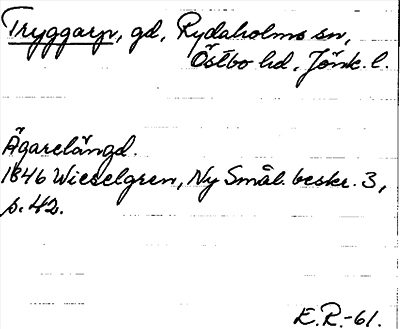 Tryggarp, gd, Rydaholms sn,
Östbo hd, Jönk. l.
Ägarelängd.
1846 Wieselgren, Ny Smål. beskr. 3,
s. 42.
E.R.-61.